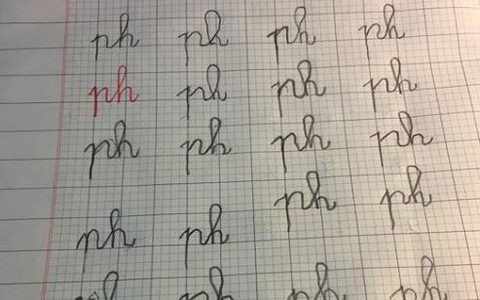 ph ph ph ph
ph ph ph ph
ph ph ph ph
ph ph ph ph